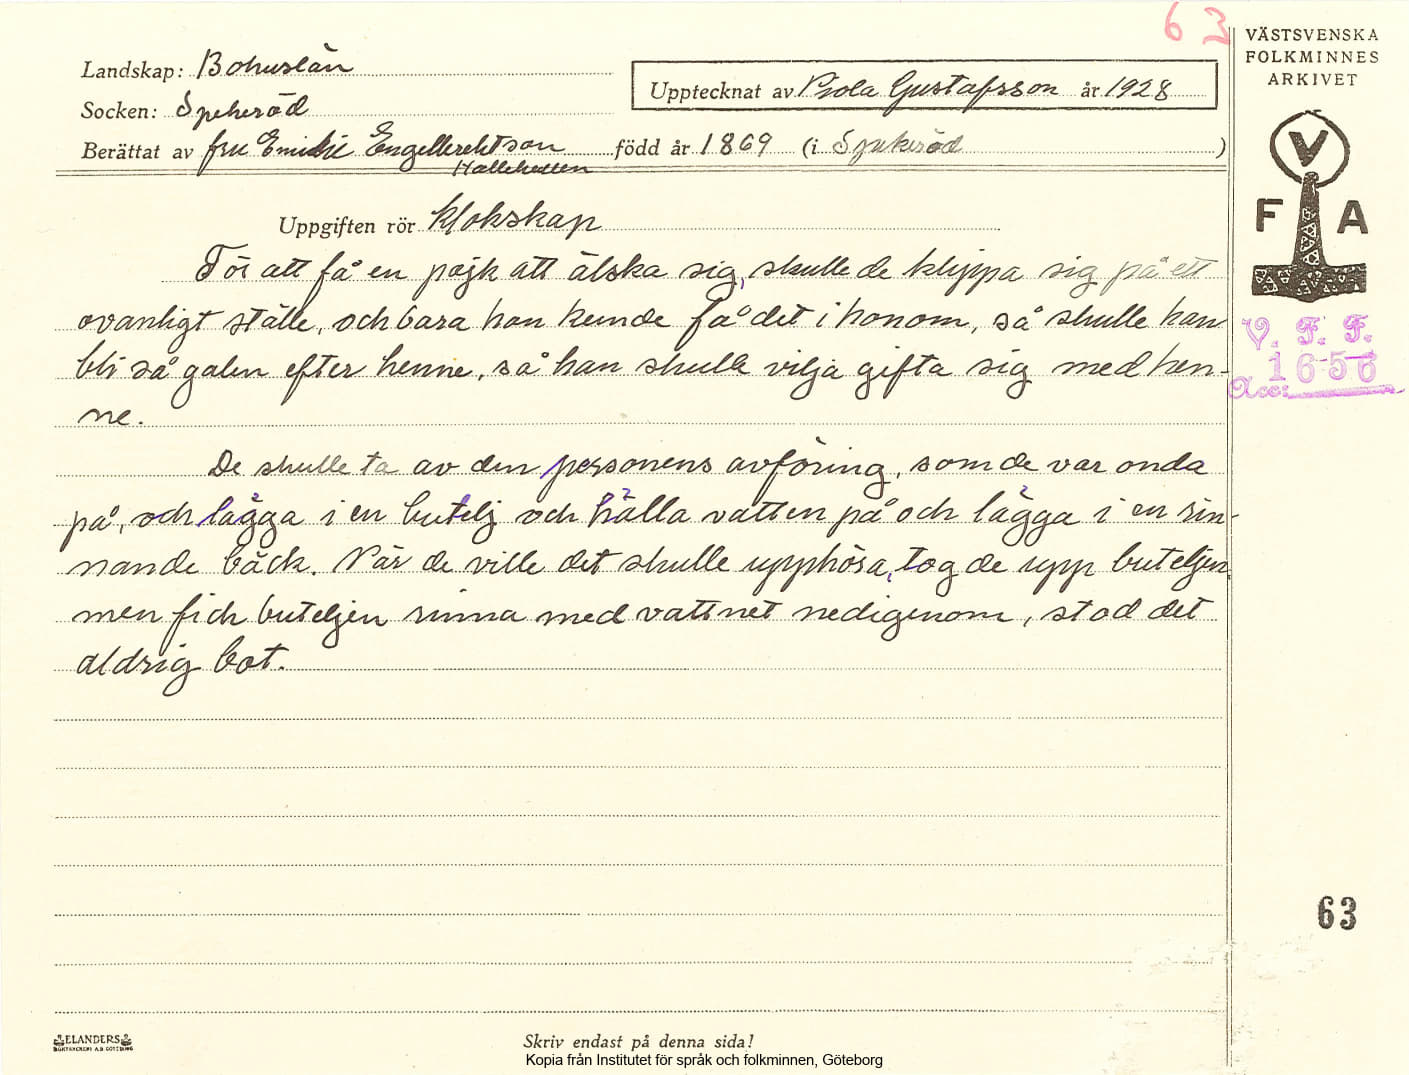 63
VÄSTSVENSKA
FOLKMINNES
ARKIVET
Landskap: Bohuslän
Socken: Spekeröd
Upptecknat av Viola Gustafsson år 1928
Berättat av fru Emilie Engelbrektson född år 1869 (i Spekeröd )
Hallehulten
Uppgiften rör Klokskap
V
F A
För att få en pojk att älska sig, skulle de klippa sig på ett
ovanligt ställe, och bara hon kunde få det i honom, så skulle han
bli så galen efter henne, så han skulle vilja gifta sig med hen-
ne.
V. F. F.
1656
Acc:
De skulle ta av den personens avföring, som de var onda
på, och lägga i en butelj och hälla vatten på och lägga i en rin-
nande bäck. När de ville det skulle upphöra, tog de upp buteljen
men fick buteljen rinna med vattnet nedigenom, stod det
aldrig bot.
63
ELANDERS
BOKTRYCKERI A.B. GÖTEBORG
Skriv endast på denna sida!
Kopia från Institutet för språk och folkminnen, Göteborg